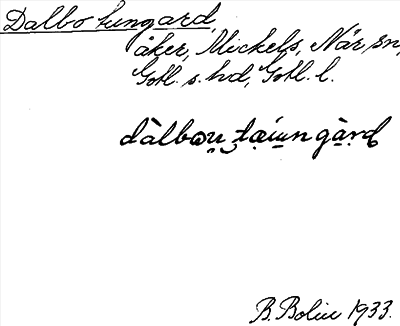 Dalbo tungard,
åker, Mickels, När sn,
Gotl. s. hd, Gotl. l.
dàlbωu̯ ta̤íu̯n gàrd
B. Bolin 1933.